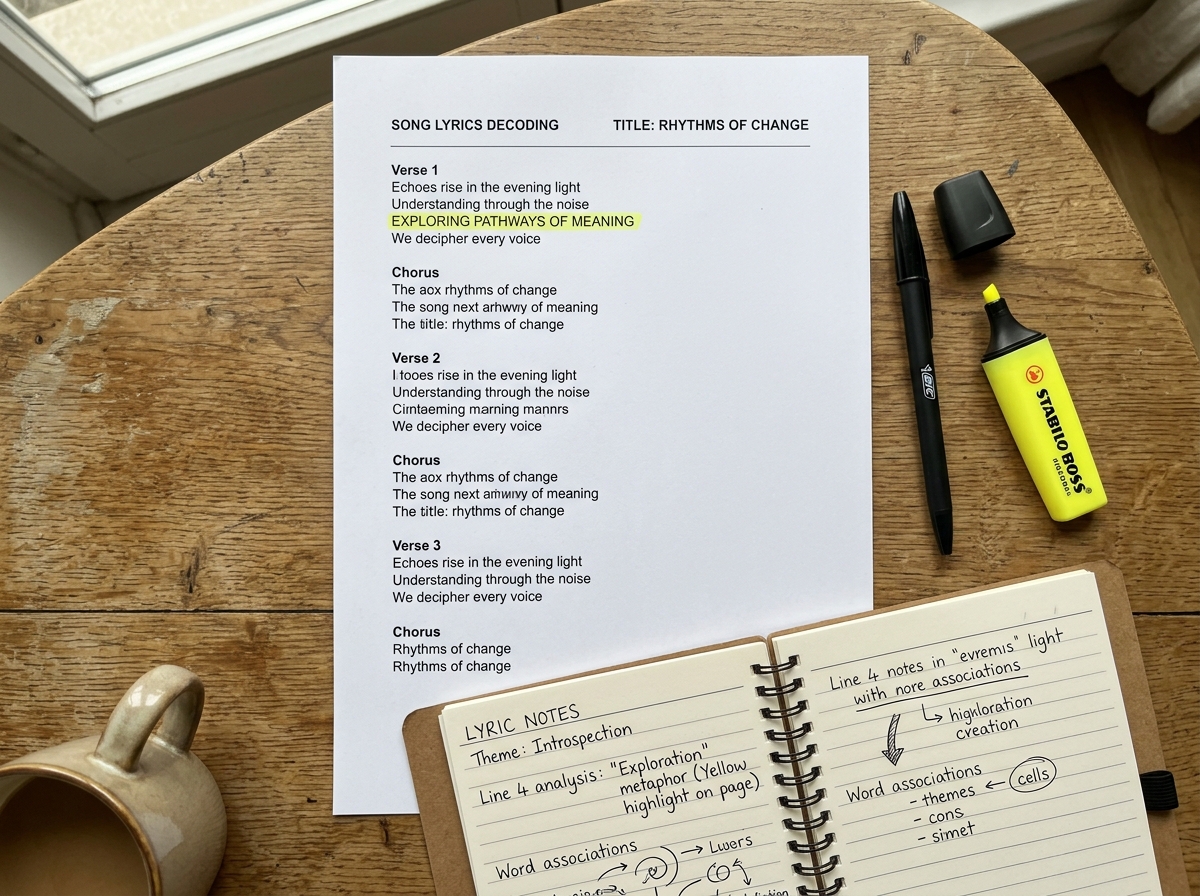 SONG LYRICS DECODING TITLE: RHYTHMS OF CHANGE
Verse 1
Echoes rise in the evening light
Understanding through the noise
EXPLORING PATHWAYS OF MEANING
We decipher every voice
Chorus
The aox rhythms of change
The song next of meaning
The title: rhythms of change
Verse 2
I tooes rise in the evening light
Understanding through the noise
Cirntaeming marning mannrs
We decipher every voice
Chorus
The aox rhythms of change
The song next of meaning
The title: rhythms of change
Verse 3
Echoes rise in the evening light
Understanding through the noise
We decipher every voice
Chorus
Rhythms of change
Rhythms of change
BIC
STABILO BOSS
LYRIC NOTES
Theme: Introspection
Line 4 analysis: "Exploration"
metaphor (Yellow
highlight on page)
Word associations
→ Luvers
Line 4 notes in "evremis" light
with nore associations
higkloration
creation
Word associations
- themes ← cells
- cons
- simet